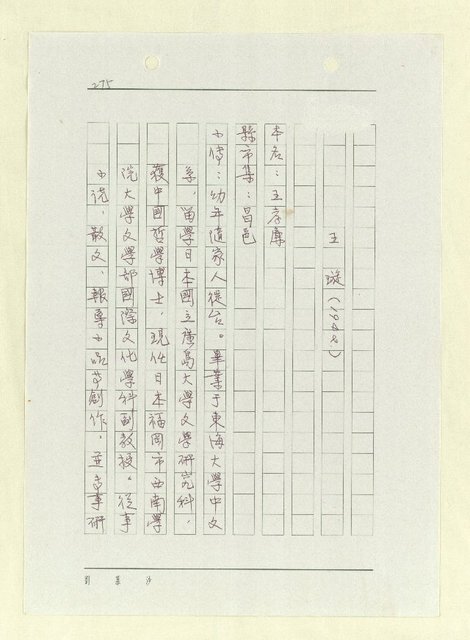 275
王　璇（1942）
本名：王孝廉
縣市集：昌邑
小傳：幼年隨家人從台。畢業于東海大學中文
系，留學日本國立廣島大學文學研究科，
獲中國哲學博士，現任日本福岡市西南學
院大學文學部國際文化學科副教授。從事
小說，散文，報導小品等創作，並專事研